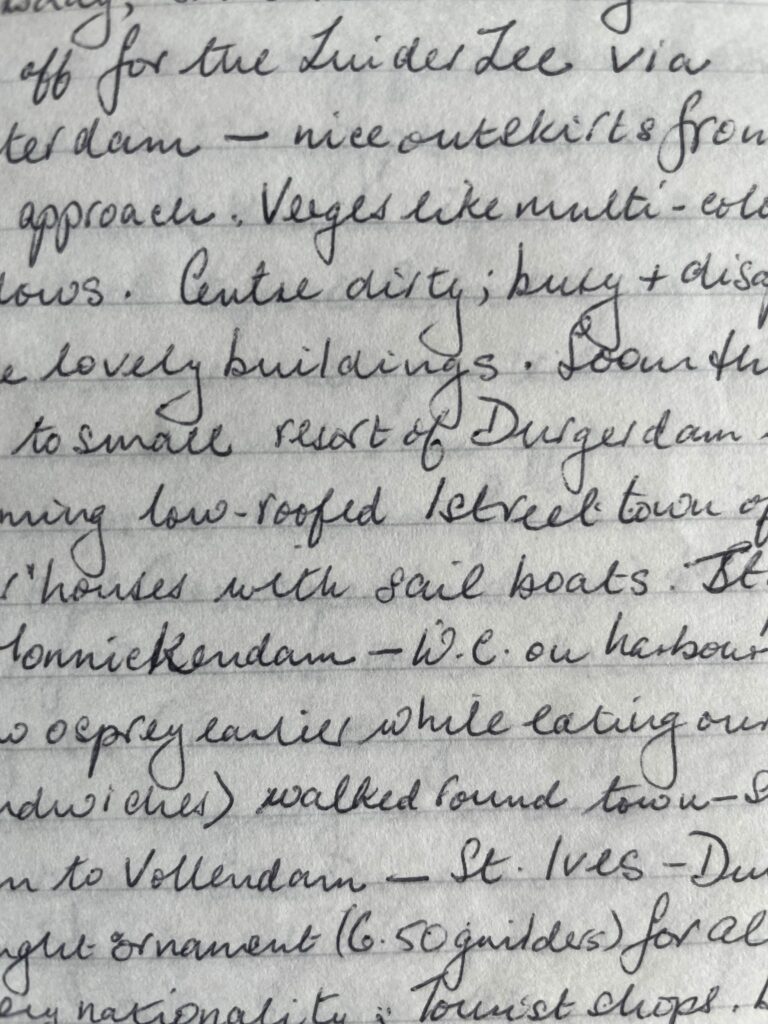 off for the Zuider Zee via
terdam — nice outskirts from
approach. Verges like multi-colo
dows. Centre dirty; busy + disap
e lovely buildings. Soon th
to small resort of Durgerdam -
ming low-roofed 1 street town of
r' houses with sail boats. St
Monnickendam — W.C. on harbour
wo osprey earlier while eating our
ndwiches) walked round town - S
en to Vollendam — St. Ives - Du
ught ornament (6.50 guilders) for Al
ery nationality; Tourist shops.